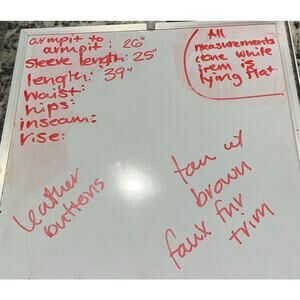 armpit to
armpit: 26"
sleeve length: 25"
length: 39"
waist:
hips:
inseam:
rise:
All
measurements
done while
item is
lying flat
leather
buttons
tan w/
brown
faux fur
trim